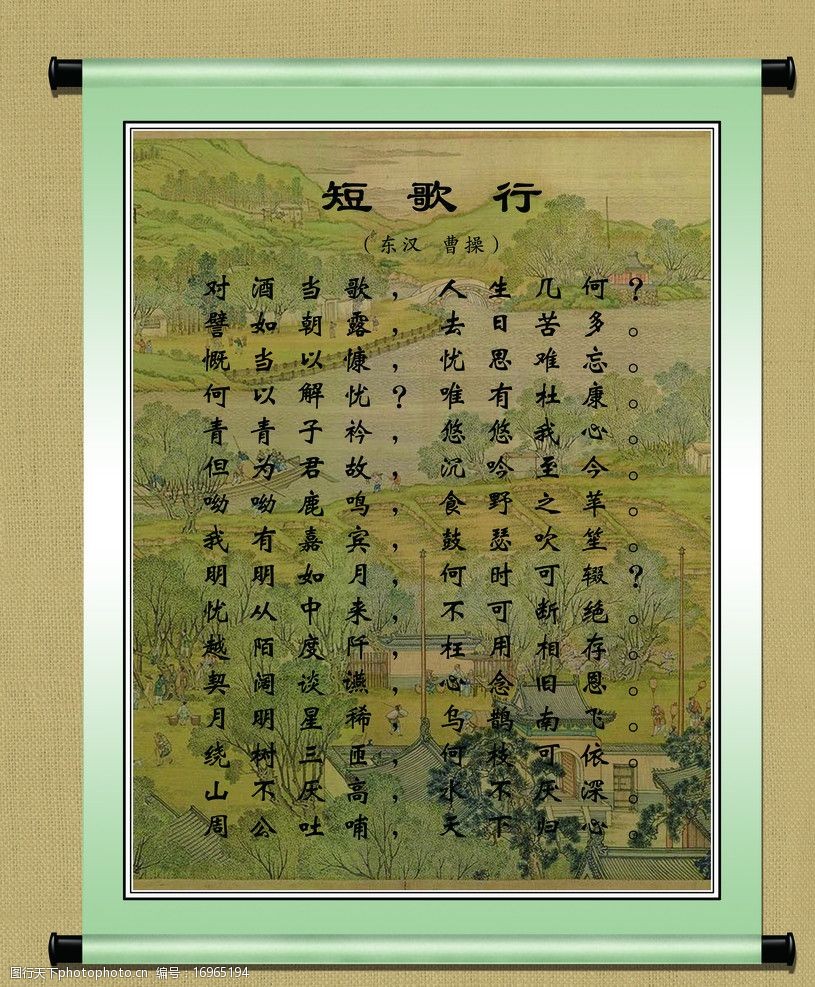 短歌行
（东汉 曹操）
对酒当歌，人生几何？
譬如朝露，去日苦多。
慨当以慷，忧思难忘。
何以解忧？唯有杜康。
青青子衿，悠悠我心。
但为君故，沉吟至今。
呦呦鹿鸣，食野之苹。
我有嘉宾，鼓瑟吹笙。
明明如月，何时可辍？
忧从中来，不可断绝。
越陌度阡，枉用相存。
契阔谈讌，心念旧恩。
月明星稀，乌鹊南飞。
绕树三匝，何枝可依。
山不厌高，水不厌深。
周公吐哺，天下归心。
图行天下photophoto.cn 编号：16965194